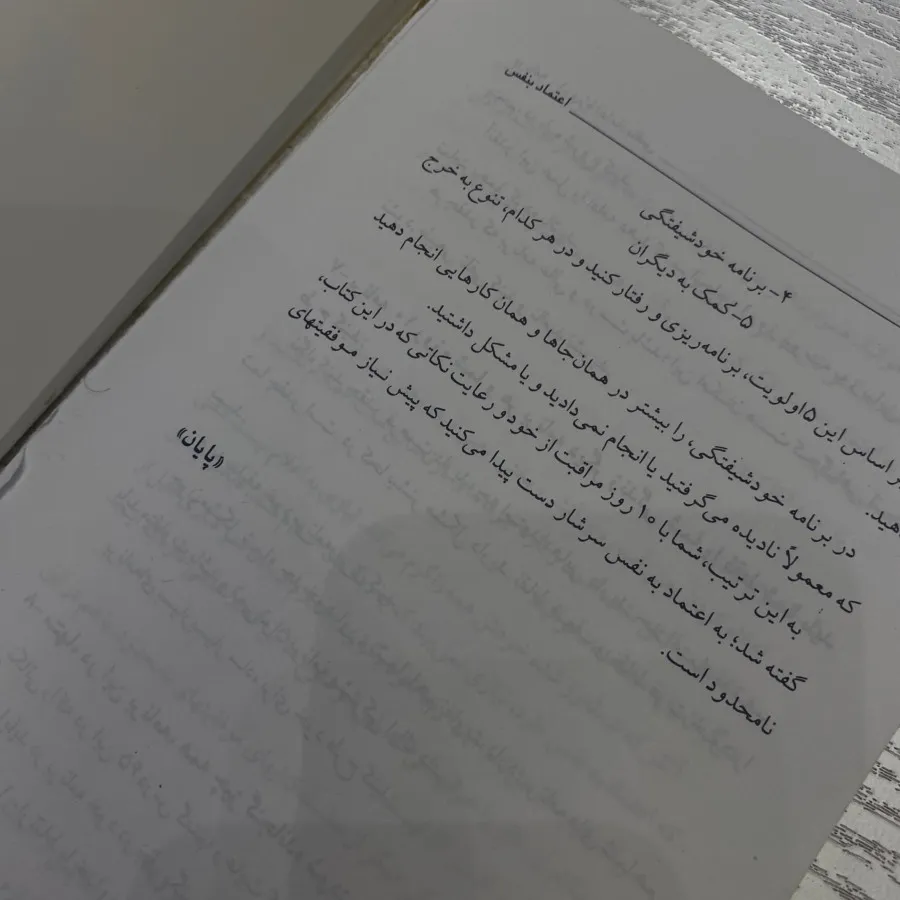 اعتماد بنفس
۴- برنامه خودشیفتگی
۵- کمک به دیگران
بر اساس این ۵ اولویت، برنامه‌ریزی و رفتار کنید و در هر کدام، تنوع به خرج
دهید.
در برنامه خودشیفتگی، را بیشتر در همان جاها و همان کارهایی انجام دهید
که معمولاً نادیده می‌گرفتید یا انجام نمی‌دادید و یا مشکل داشتید.
به این ترتیب، شما با ۱۰ روز مراقبت از خود و رعایت نکاتی که در این کتاب،
گفته شد؛ به اعتماد به نفس سرشار دست پیدا می‌کنید که پیش نیاز موفقیتهای
نامحدود است.
«پایان»